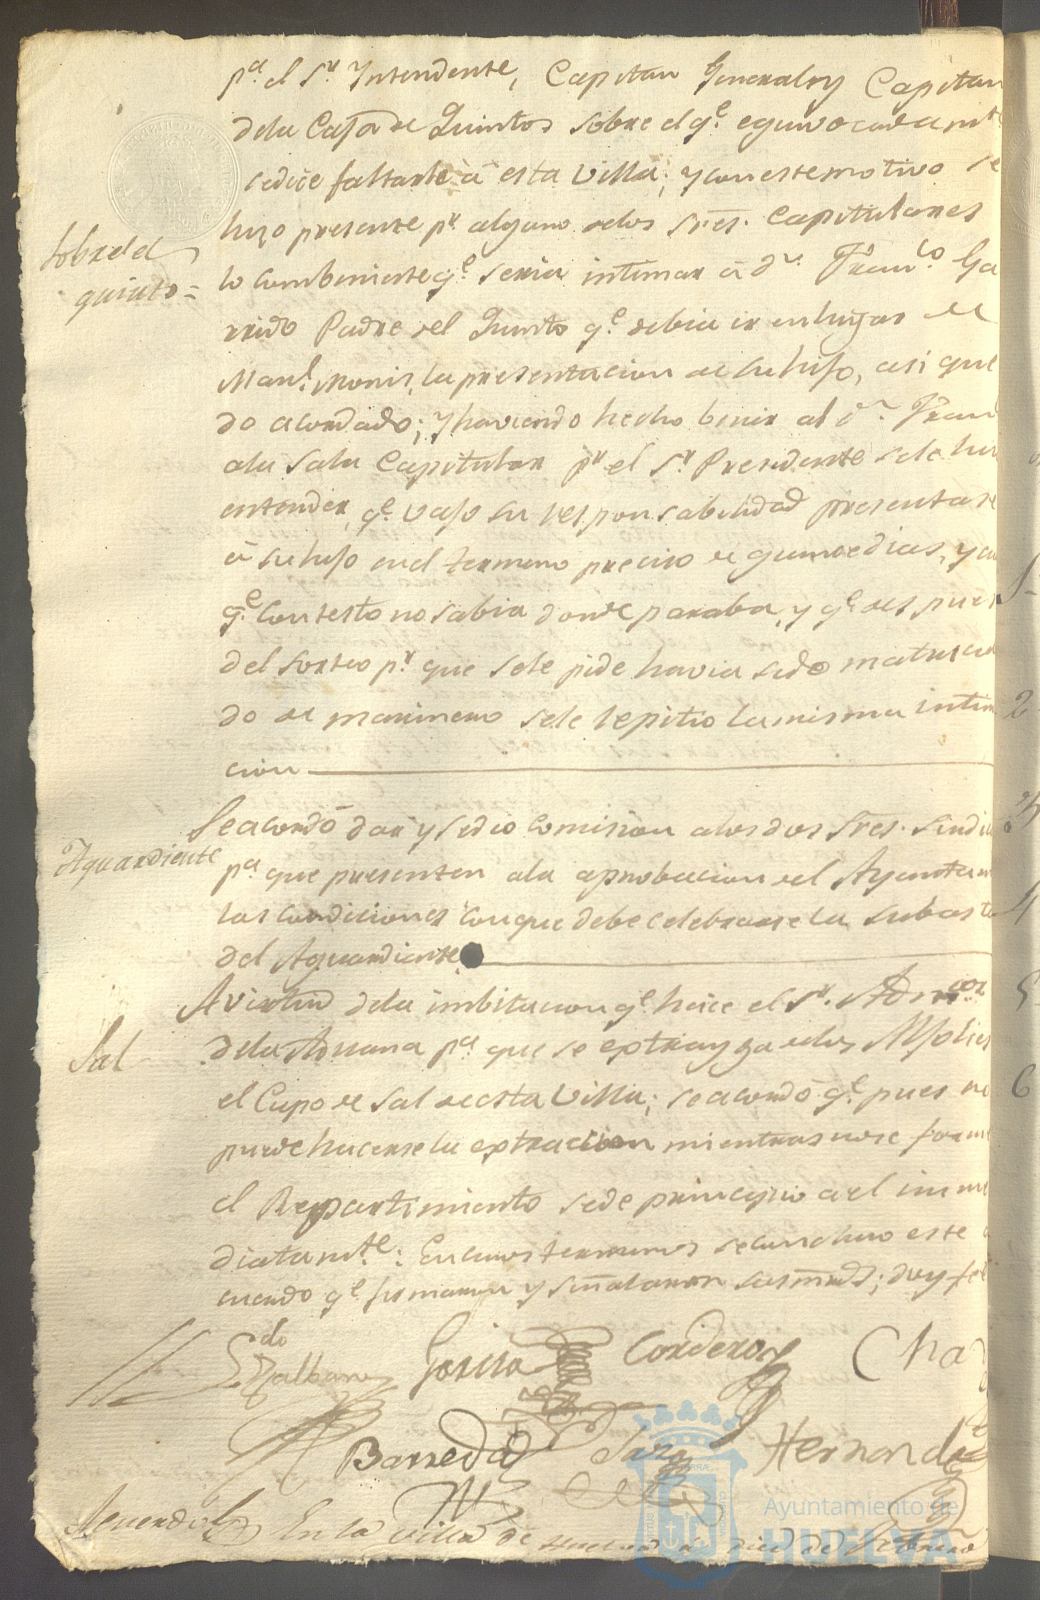 pª el Sr Yntendente, Capitan General y Capitan
dela Caja de Quintos sobre el qe equivocadamte
sedice faltarle à esta Villa; y con este motivo se
hizo presente pr alguno delos Sres. Capitulares
Sobre el
quinto=
lo combeniente qe seria intimar à Dn Franco Ga
rrido Padre del Quinto qe debia ir en lugar de
Manl Monis, la presentacion de su hijo, asi que
do acordado; y haviendo hecho benir al Dn Fran
ala Sala Capitular pr el Sr Presidente sele hizo
entender, qe vajo su responsabilidad presentase
à su hijo en el termino preciso de quince dias, y
qe contesto no sabia donde paraba, y qe despues
del sorteo pr que sele pide havia sido matricula
do de marinero sele repitio la misma intima
cion
Aguardiente
Se acordó dar y se dio comision alos dos Sres. Sindi
pª que presenten ala aprobacion del Ayuntam
las condiciones con que debe celebrarse la subasta
del Aguardiente
Sal
A virtud dela imbitacion qe hace el Sr. Admor
dela Aduana pª que se extrayga delos Alfolies
el Cupo de Sal de esta Villa; se acordó qe pues no
puede hacerse la extraccion mientras no se forme
el Repartimiento sede principio a el inme
diatamte: En cuyos terminos se concluyo este a
cuerdo qe firmaron y señalaron sus mrds; doy fe
Garcia Cordero Cha
Barreda Hernand
Acuerdo En la villa de Huelva a diez de Febrero
Ayuntamiento de
HUELVA